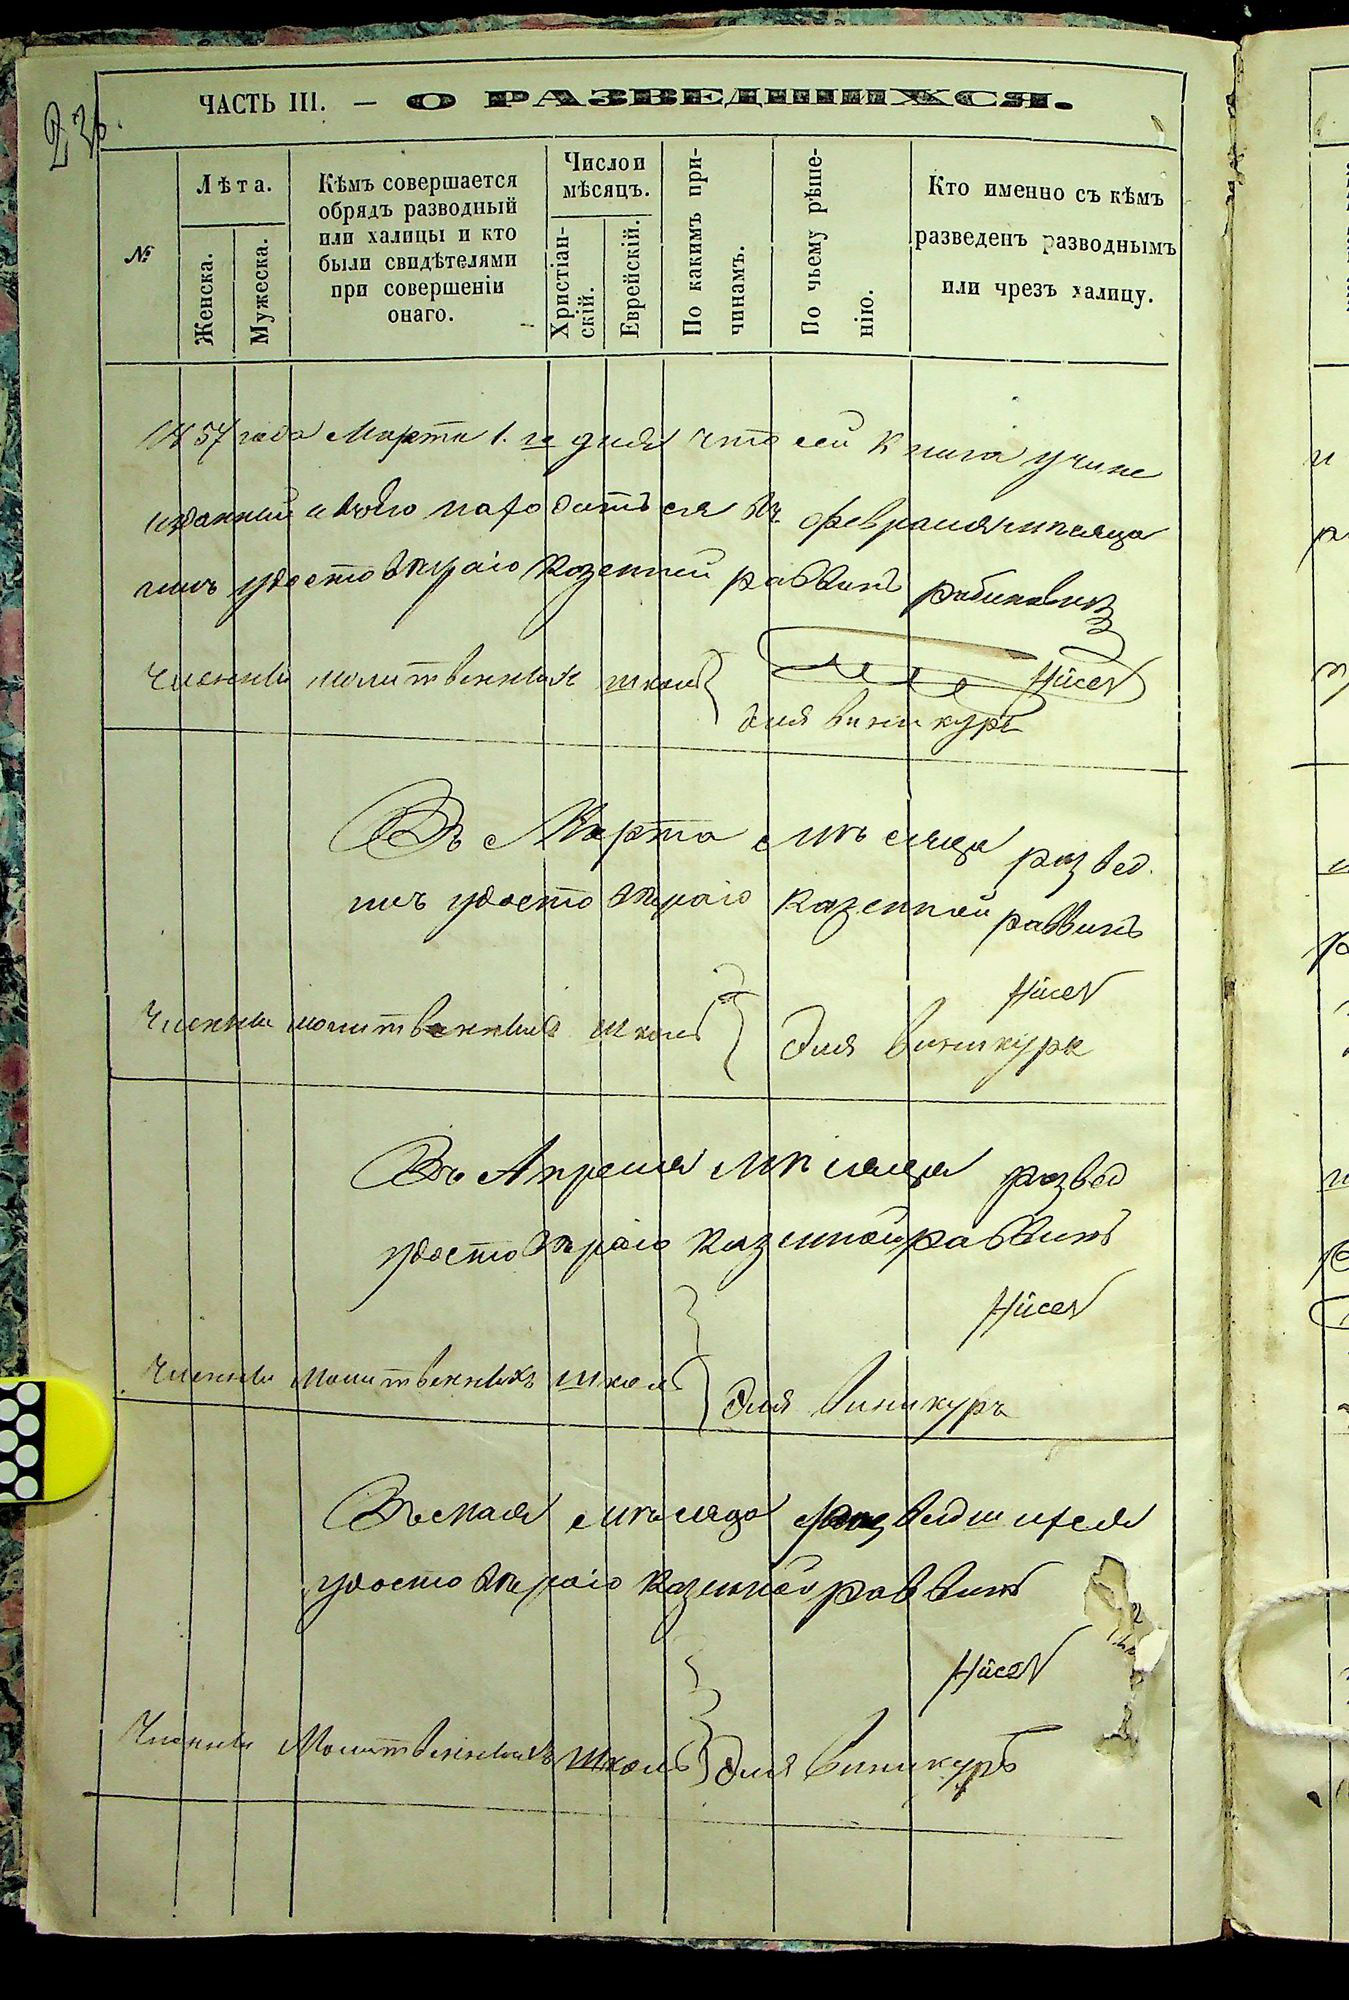 23
ЧАСТЬ III. — О РАЗВЕДШИХСЯ.
№
Лѣта.
Женска.
Мужеска.
Кѣмъ совершается
обрядъ разводный
или халицы и кто
были свидѣтелями
при совершеніи
онаго.
Число и
мѣсяцъ.
Христіан-
скій.
Еврейскій.
По какимъ при-
чинамъ.
По чьему рѣше-
нію.
Кто именно съ кѣмъ
разведенъ разводнымъ
или чрезъ халицу.
1857 года Марта 1. го дня что сей книга
находиться въ февраля мѣсяца
удостовѣраю казенной раввинъ рабиновичъ
Членны молитвенных школъ
Эля виникуръ
Въ Марта мѣсяца развед.
удостовѣраю казенной раввинъ
Членны молитвенных школъ Эля виникуръ
Въ Апреля мѣсяца развед
удостовѣраю казенной раввинъ
Членны молитвенныхъ школъ Эля виникуръ
Въ мая мѣсяца разведшихся
удостовѣраю казенной раввинъ
Членны Молитвенныхъ школъ Эля виникуръ